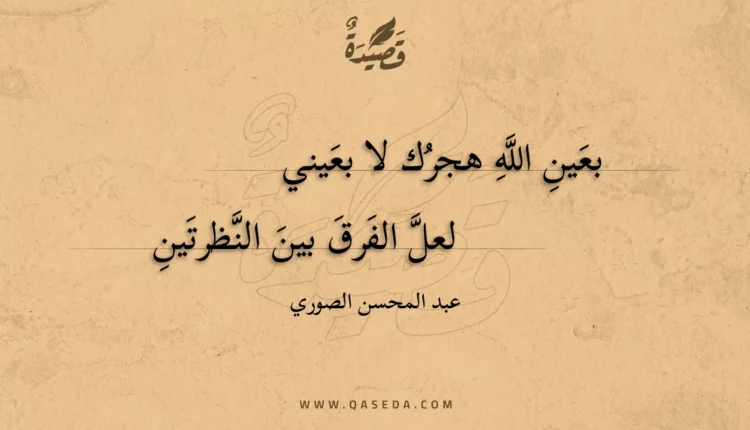 قَصِيْدَةٌ
بعَينِ اللَّهِ هجرُك لا بعَيني
لعلَّ الفَرقَ بينَ النَّظرتَينِ
عبد المحسن الصوري
WWW.QASEDA.COM